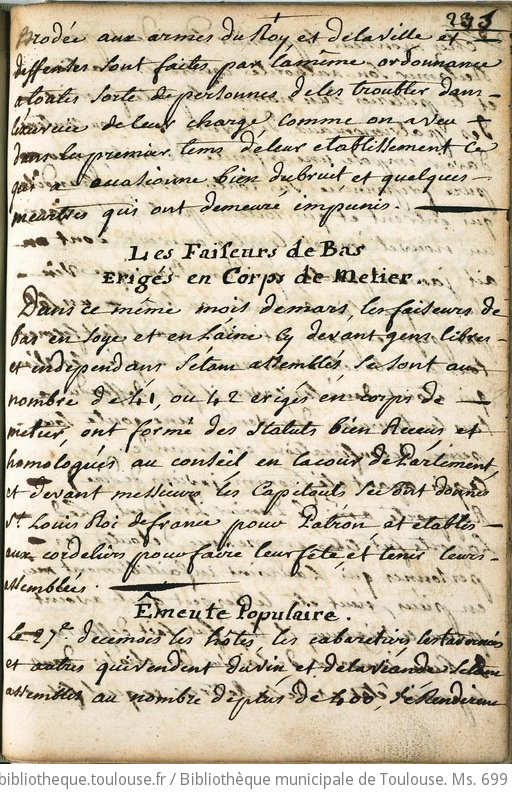 233
Brodée aux armes du Roy et de la ville et
deffences sont faites par la même ordonnance
a toutes sorte de personnes de les troubler dans
l'exercice de leur charge comme on a veu
dans les premier tems de leur etablissement ce
qui a ocasionne bien du bruit et quelques
meurtres qui ont demeuré impunis.
Les Faiseurs de Bas
Erigés en Corps de Metier.
Dans ce même mois de mars, les faiseurs de
bas en soye et en Laine cy devant gens libres
et independans s'étant assemblés se sont au
nombre de 41, ou 42 erigés en corps de
metier, ont formé des statuts bien Receus et
homologués au conseil en la cour de Parlement,
et devant messieurs les Capitouls se sont donnés
St Louis Roi de france pour Patron et etablis
aux cordeliers pour faire leur fete, et tenir leurs
assemblées.
Émeute Populaire.
Le 27e de ce mois les hôtes, les cabaretiers
et autres qui vendent du vin et de la viande s'étant
assemblés au nombre de plus de 400, se Rendirent
bibliotheque.toulouse.fr / Bibliothèque municipale de Toulouse. Ms. 699